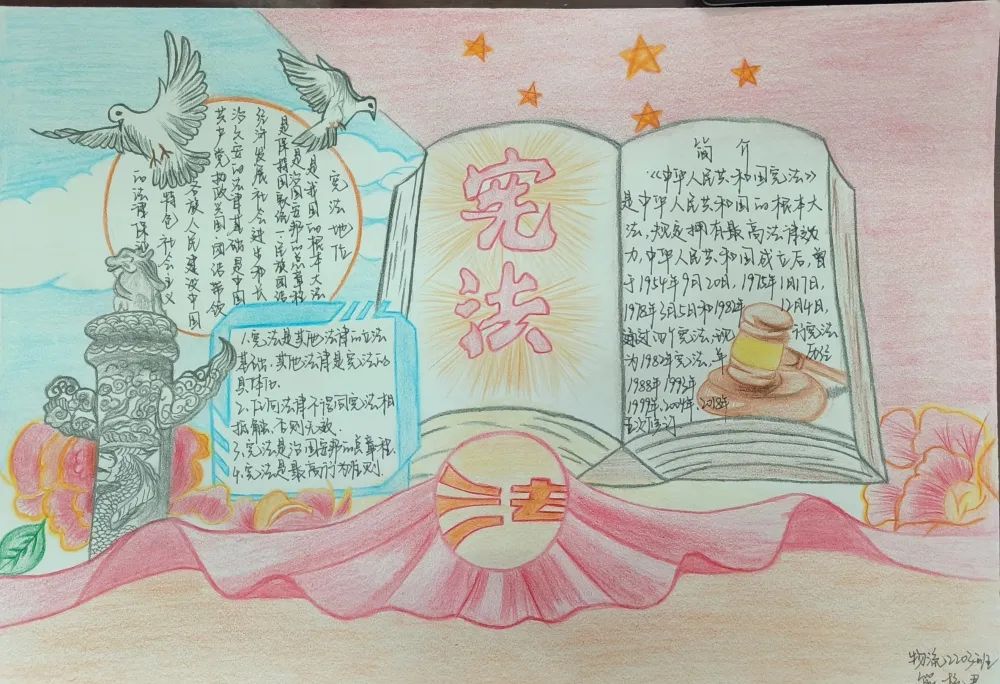 宪法地位
是我国的根本大法
是治国安邦的总章程
是保持国家统一民族团结
经济发展社会进步和长
治久安的法律基础是中国
共产党执政兴国、团结带领
各族人民建设中国
特色社会主义
的法律保
1.宪法是其他法律的立法
基础，其他法律是宪法的
具体化.
2.任何法律不得同宪法相
抵触，否则无效.
3.宪法是治国安邦的总章程.
4.宪法是最高行为准则.
宪法
简介
《中华人民共和国宪法》
是中华人民共和国的根本大
法，规定拥有最高法律效
力，中华人民共和国成立后，曾
于1954年9月20日，1975年1月17日，
1978年3月5日和1982年 12月4日，
通过四个宪法，现行宪法，
为1982年宪法，年 历经
1988年 1993年
1999年、2004年、2018年
五次修订
法
物流2203班